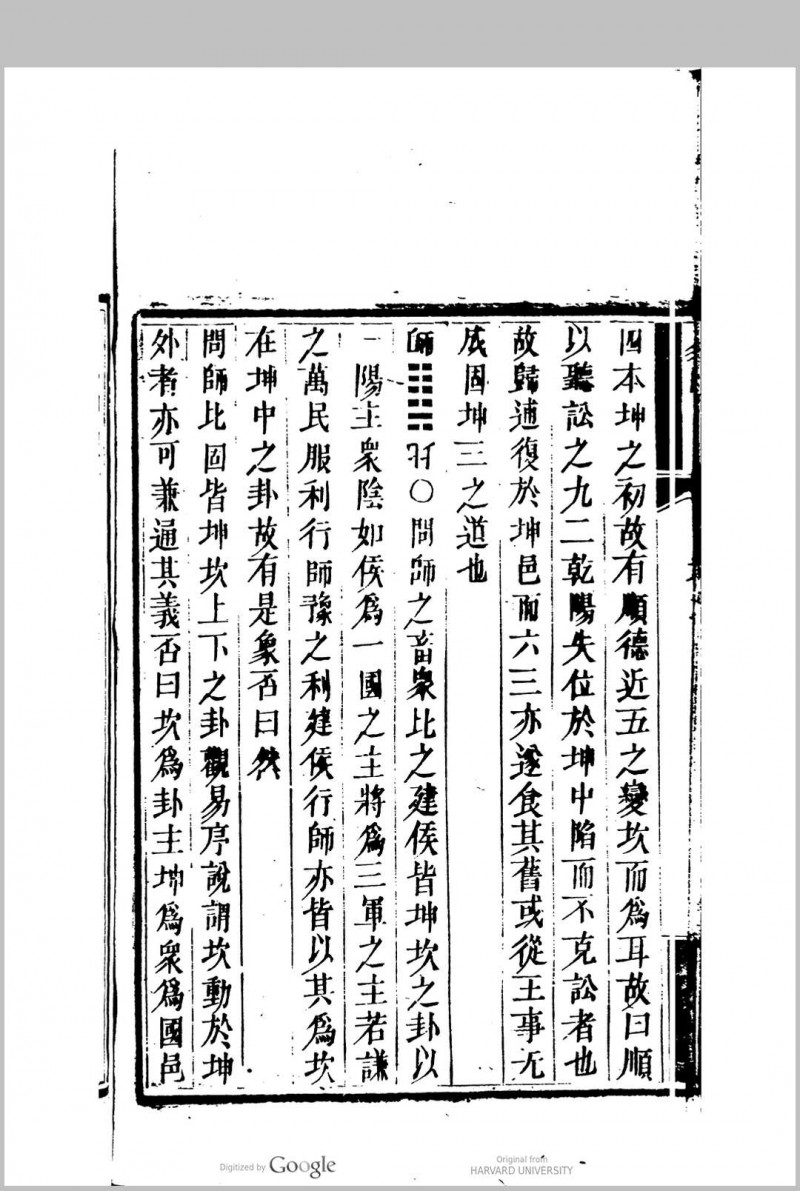 四本坤之初故有順德近五之變坎而為耳故曰順
以聽訟之九二乾陽失位於坤中陷而不克訟者也
故歸逋復於坤邑而六三亦遂食其舊或從王事无
成固坤三之道也
師䷆ ○問師之畜衆比之建侯皆坤坎之卦以
一陽主衆陰如侯爲一國之主將爲三軍之主若謙
之萬民服利行師豫之利建侯行師亦皆以其爲坎
在坤中之卦故有是象否曰然
問師比固皆坤坎上下之卦觀易序說謂坎動於坤
外者亦可兼通其義否曰坎爲卦主坤爲衆爲國邑
Digitized by Google
Original from
HARVARD UNIVERSITY